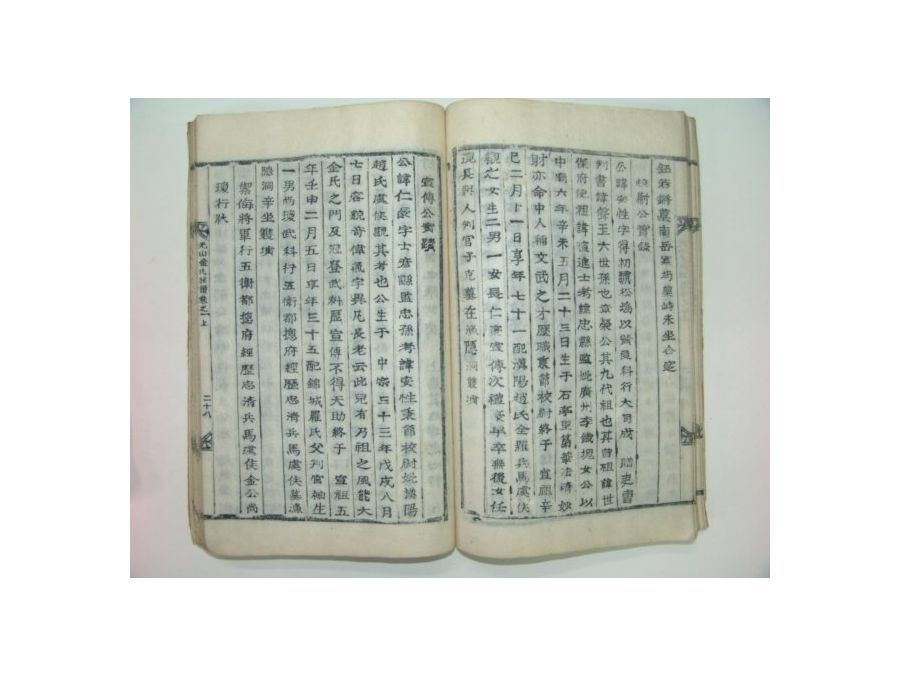 校尉公實錄
公諱安性字得初號松塢以賢良科行大司成 贈吏曹
判書諱 六世孫也章榮公其九代祖也其曾祖諱世
府使祖諱 進士考諱忠 縣監妣廣州李 女公以
中廟六年辛未五月二十三日生于石亭里 法精妙
財亦命中人稱文武之才歷職秉節校尉終于 宣祖辛
巳二月十一日享年七十一配漢陽趙氏全羅兵馬虞侯
觀之女生二男一女長仁 宣傳次 早卒無後女任
判官子克墓在 隱洞雙墳
宣傳公實蹟
公諱仁 字士 縣監忠孫考諱安性秉節校尉妣漢陽
趙氏虞侯觀其考也公生于 中宗三十三年戊戌八月
七日容貌奇偉氣宇異凡長老云此兒有乃祖之風能大
金氏之門及冠登武科歷宣傳不得天助終于 宣祖五
年壬申二月五日享年三十五配錦城羅氏父判官 生
一男 武科行五衛都摠府經歷忠淸兵馬虞侯墓
隱洞辛坐雙墳
禦侮將軍行五衛都摠府經歷忠淸兵馬虞侯金公尙
行狀
光山金氏 譜卷之一上
二十八